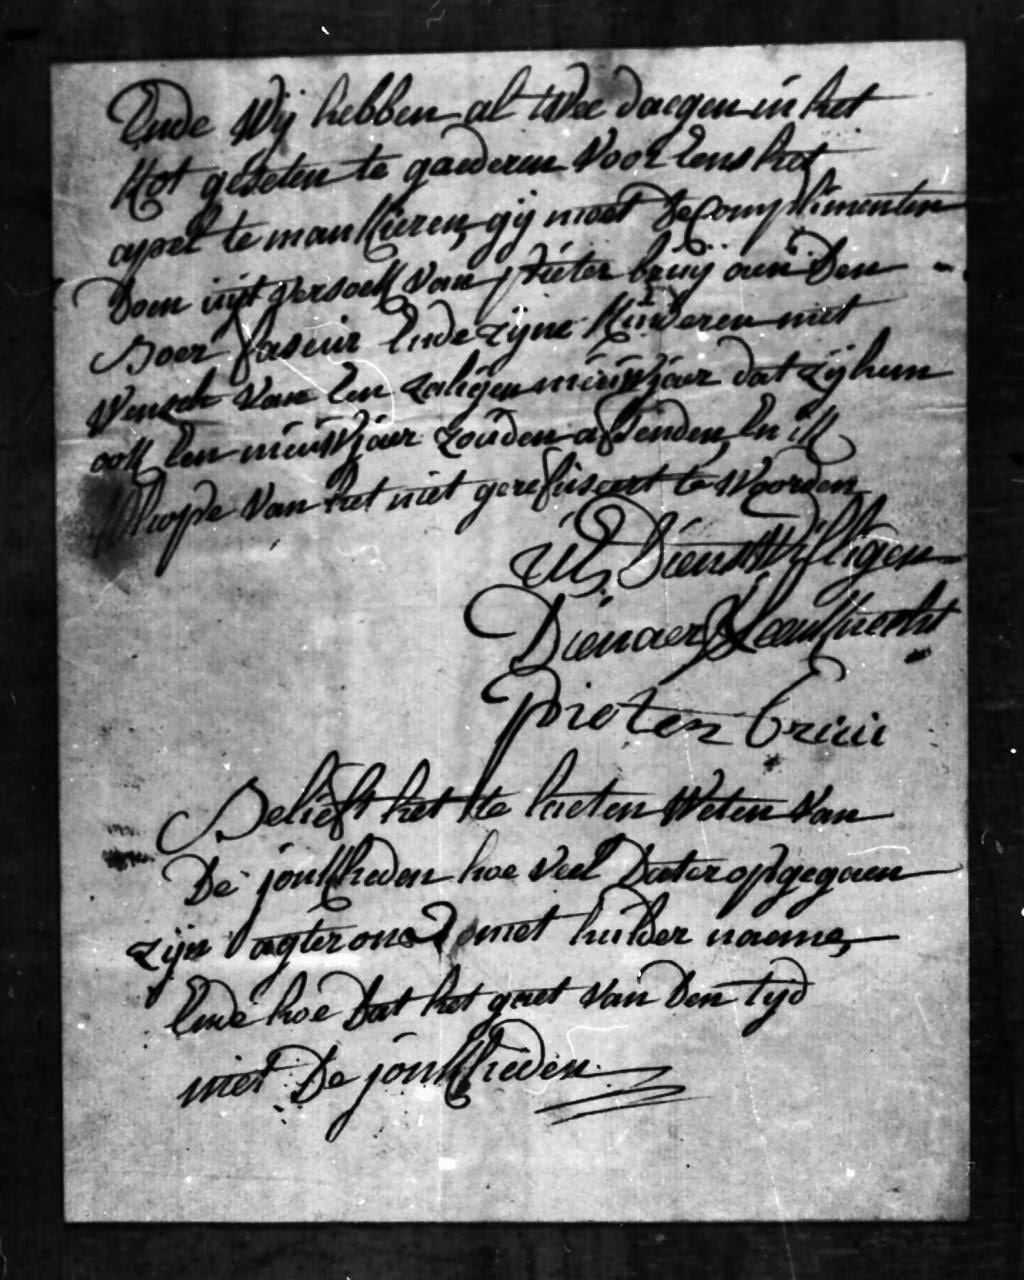 Ende Wij hebben al twee daegen in het
Kot geseten te gaederen voor eens het
appel te manckieren, gij moet de Complimenten
Doen uijt versoek van pieter bruij aen Den
Boer enDe zijne Kinderen met
Wensch van een zaligen nieuwjaer dat zij hem
ook een nieuwjaer zouden afsenden, en ik
hope van het niet gerefuseert te woorden
UL Dienstwilligen
Dienaer
pieter bruii
Belieft het te laeten Weten van
De jonkheden hoe veel Datter opgegaen
zijn agter ons met hulder naeme,
Ende hoe Dat het gaet van Den tijd
met De jonkheden